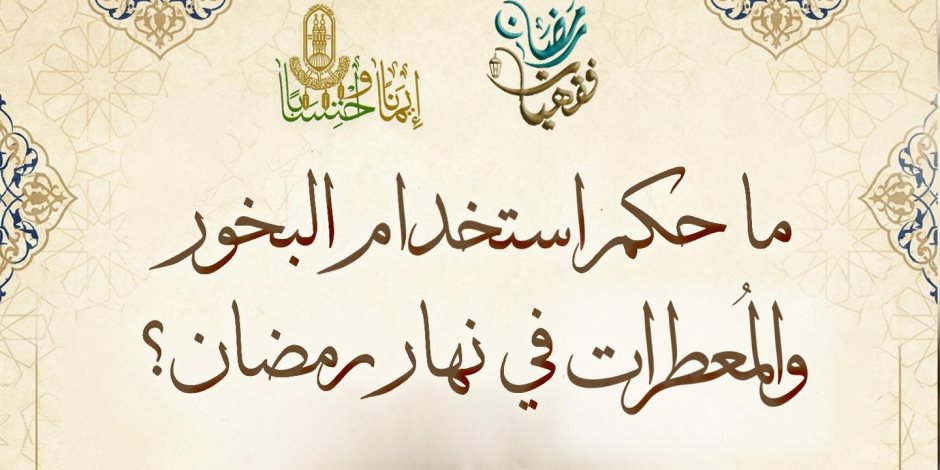 رمضان
فقهيات
إيمانا
واحتسابا
ما حكم استخدام البخور
والمُعطرات في نهار رمضان؟